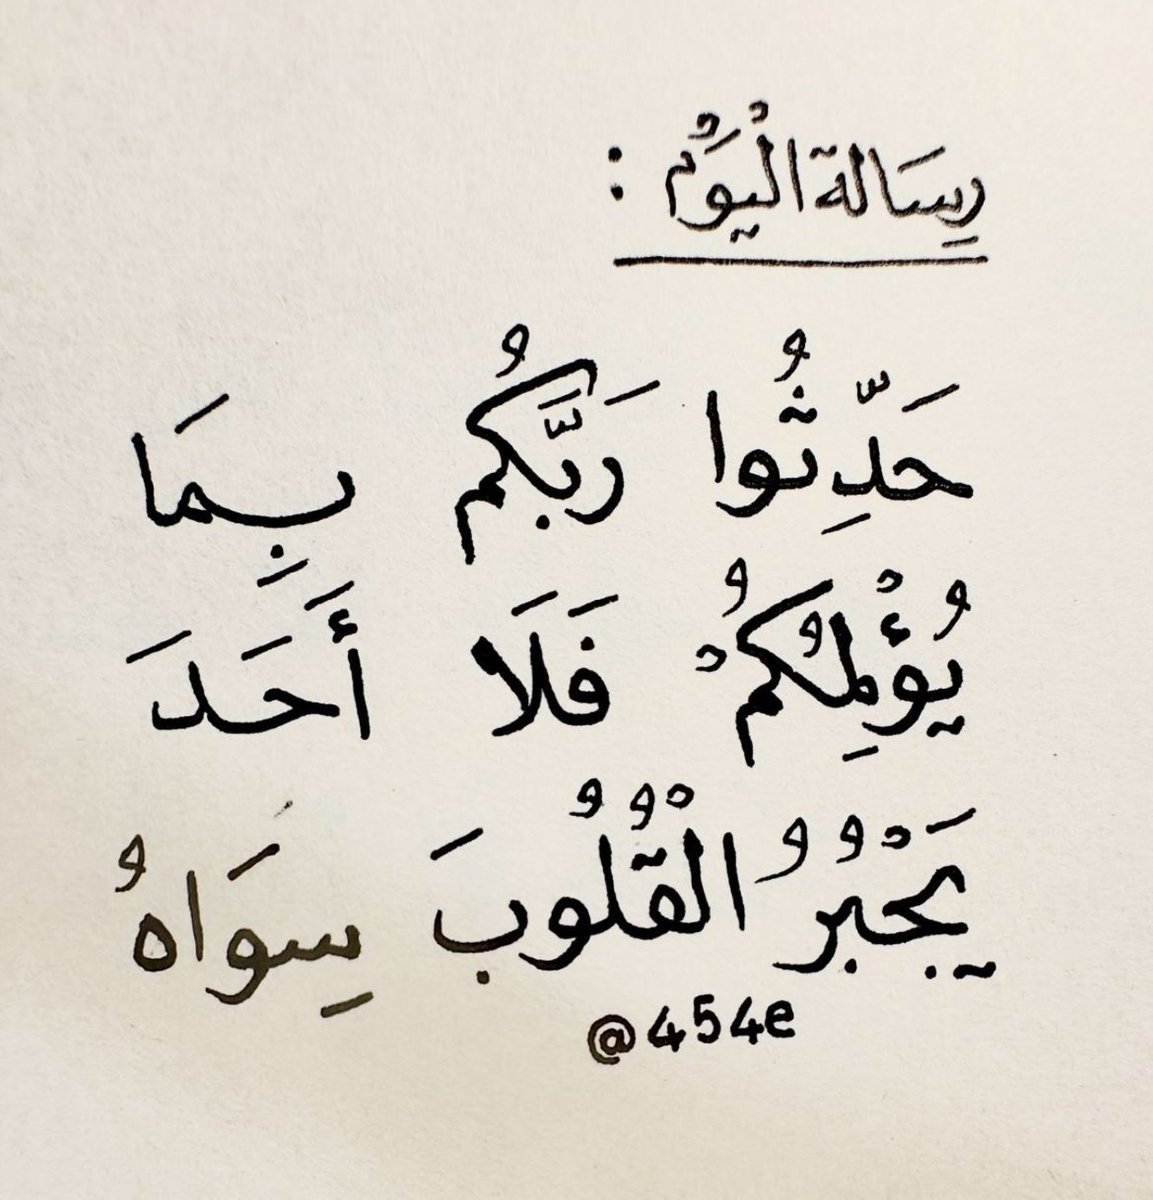 رِسَالة الْيَوْم :
حَدِّثُوا رَبَّكُم بِمَا
يُؤْلِمُكُمْ فَلَا أَحَدَ
يَجْبُرُ الْقُلُوبَ سِوَاهُ
@454e